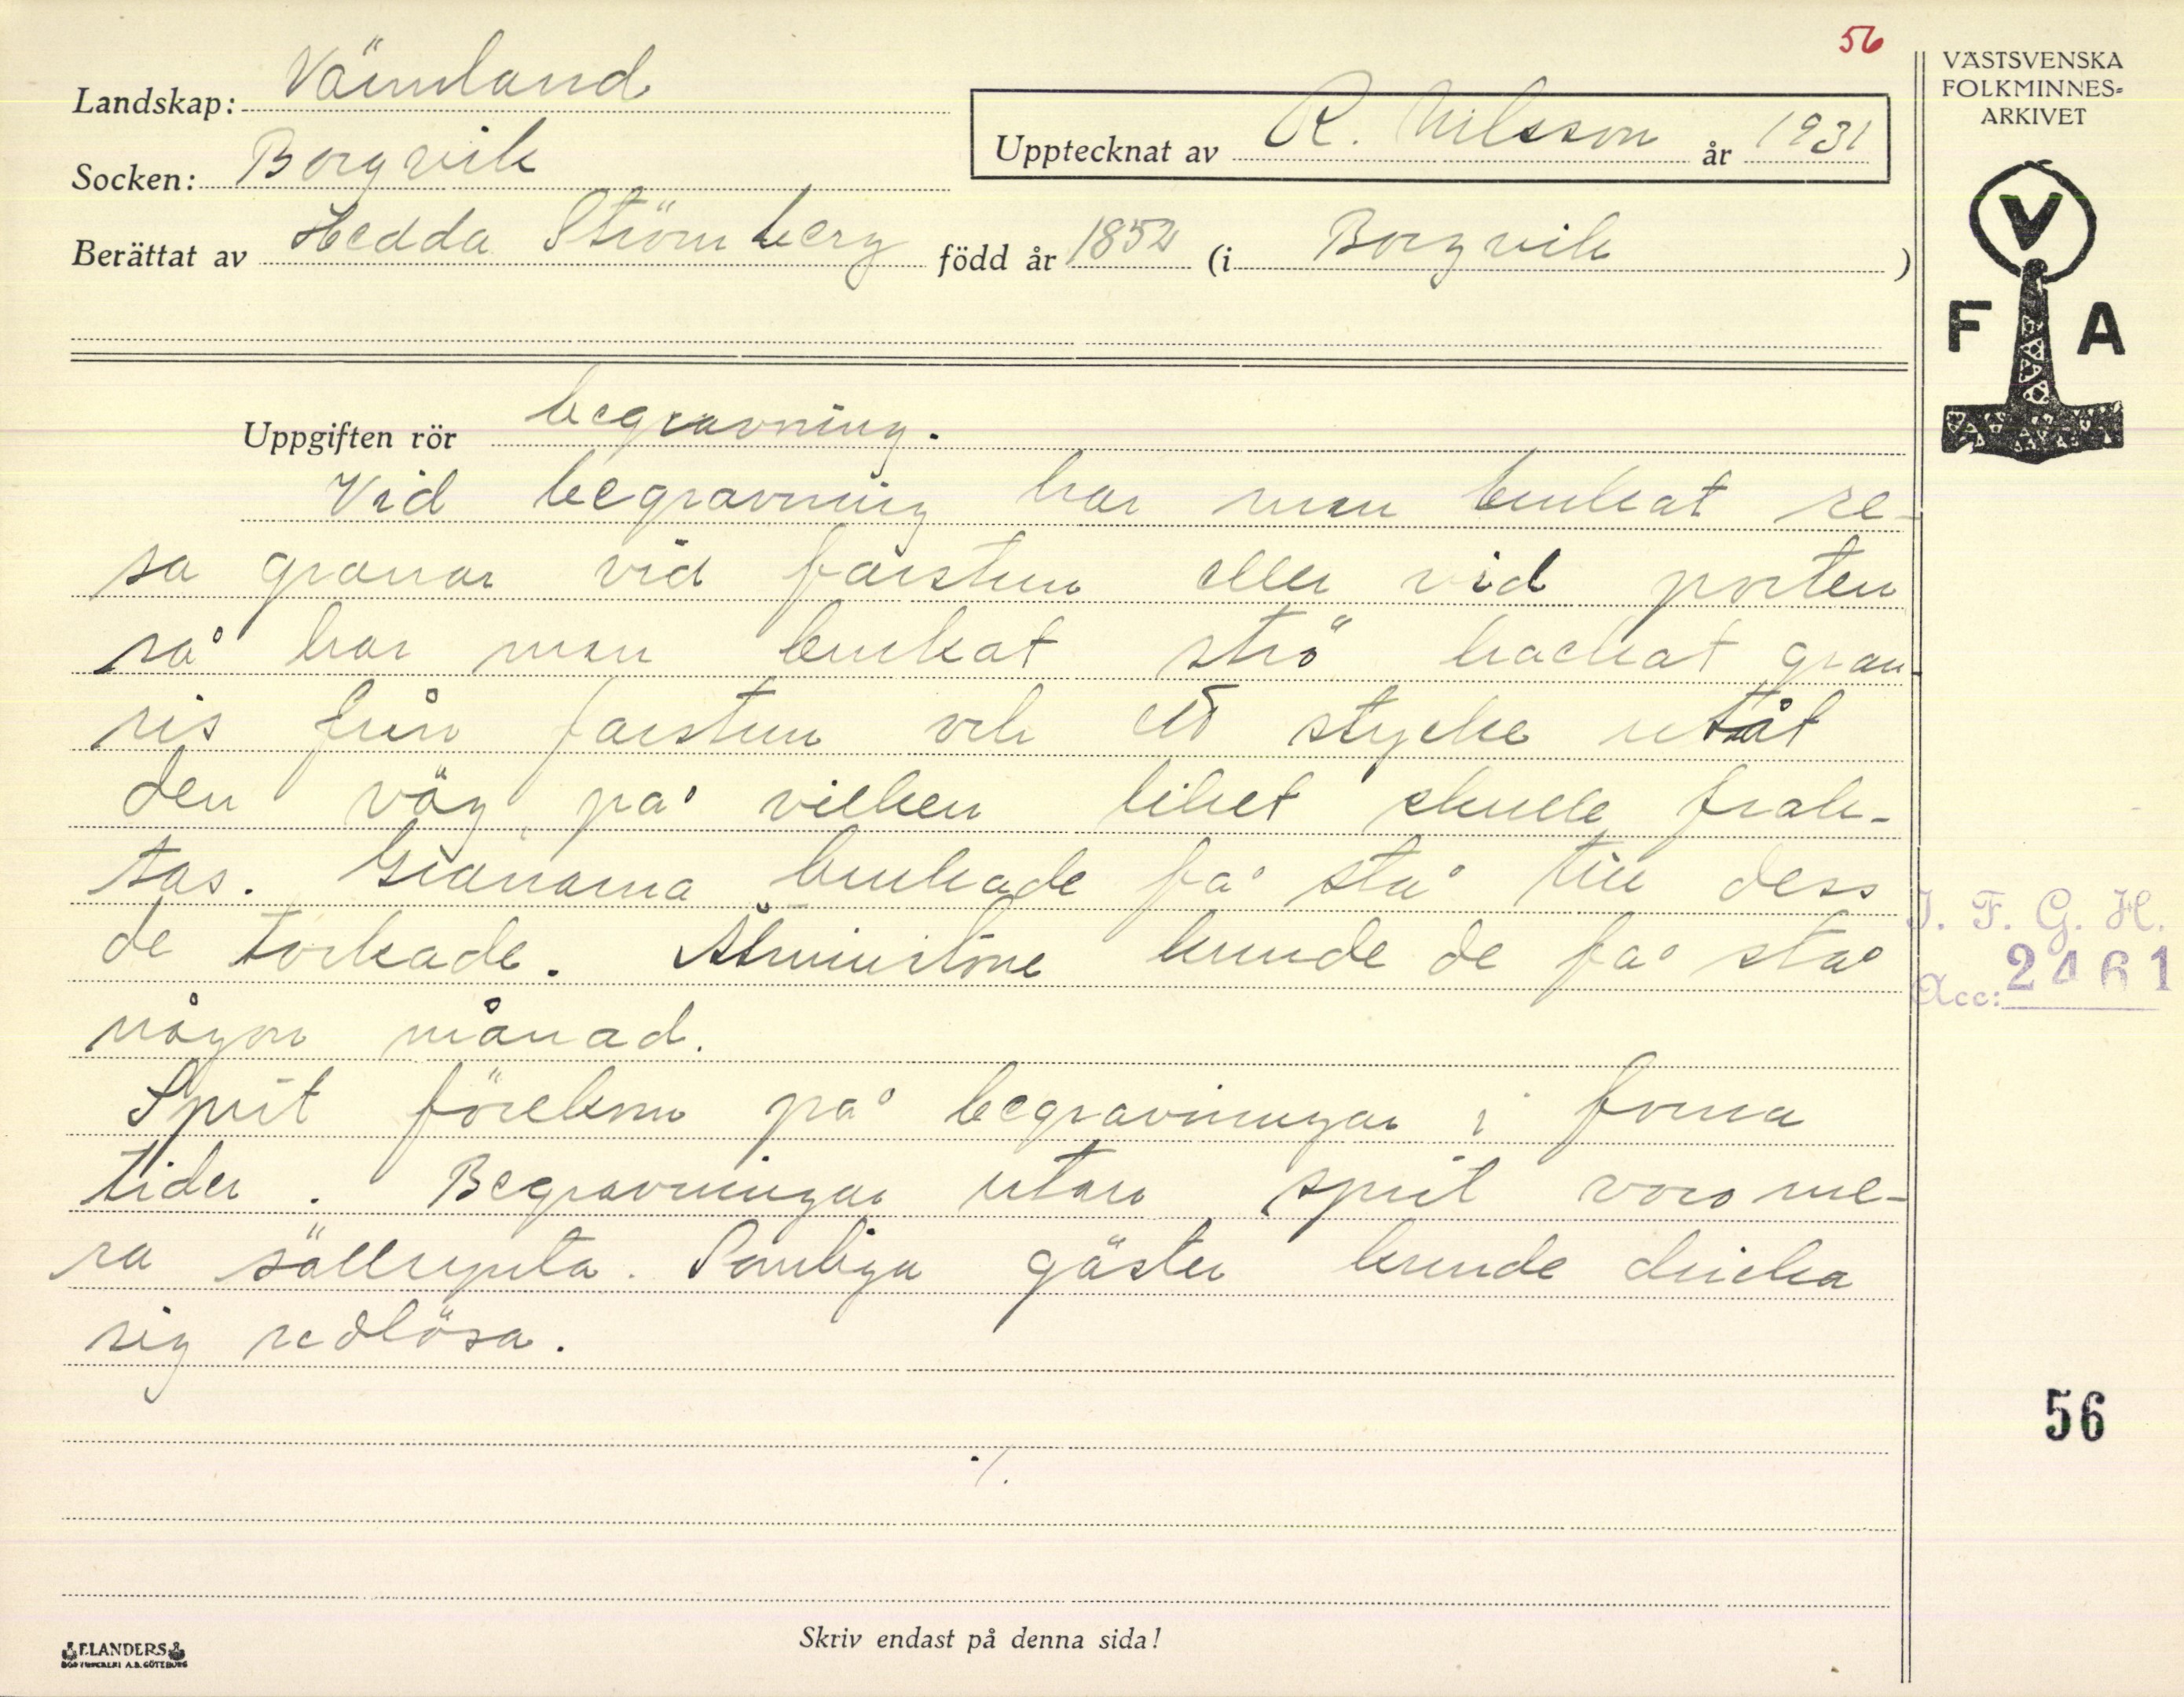 56
Landskap: Värmland
Socken: Borgvik
Upptecknat av R. Nilsson år 1931
Berättat av Hedda Strömberg född år 1852 (i Borgvik )
VÄSTSVENSKA
FOLKMINNES-
ARKIVET
V
F A
Uppgiften rör begravning.
Vid begravning har man brukat re-
sa granar vid farstun eller vid porten
så har man brukat strö hackat gran-
ris från farstun och ett stycke utåt
den väg på vilken liket skulle frak-
tas. Granarna brukade få stå till dess
de torkade. Åtminstone kunde de få stå
någon månad.
Sprit förekom på begravningar i forna
tider. Begravningar utan sprit voro me-
ra sällsynta. Somliga gäster kunde dricka
sig redlösa.
./.
I. F. G. H.
Acc: 2461
56
Skriv endast på denna sida!
ELANDERS
BOKTRYCKERI A.B. GÖTEBORG